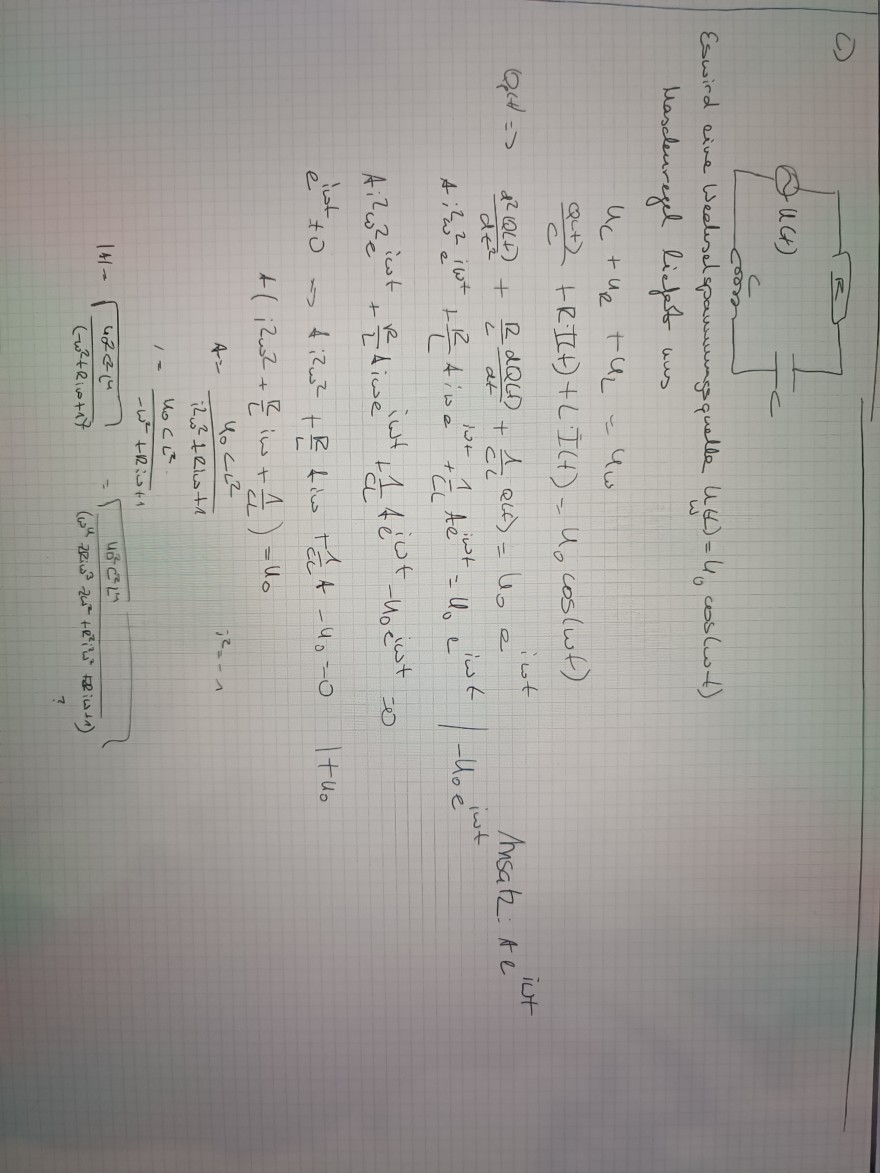 c)
R
U(t)
C
C
Es wird eine Wechselspannungsquelle U_w(t) = U₀ cos(ωt)
Maschenregel liefert uns
U_C + U_R + U_L = U_w
Q(t)/C + R·I(t) + L·İ(t) = U₀ cos(ωt)
Q(t) => d²Q(t)/dt² + R/L dQ(t)/dt + 1/CL Q(t) = U₀ e^{iωt} Ansatz: A e^{iωt}
A i²ω² e^{iωt} + R/L A iω e^{iωt} + 1/CL A e^{iωt} = U₀ e^{iωt} | -U₀ e^{iωt}
A i²ω² e^{iωt} + R/L A iω e^{iωt} + 1/CL A e^{iωt} - U₀ e^{iωt} = 0
e^{iωt} ≠ 0 => A i²ω² + R/L A iω + 1/CL A - U₀ = 0 | + U₀
A ( i²ω² + R/L iω + 1/CL ) = U₀
A = U₀ C L² / i²ω² + Riω + 1 i² = -1
= U₀ C L² / -ω² + Riω + 1
|A| = √( U₀² C² L⁴ / (-ω² + Riω + 1)² ) = √( U₀² C² L⁴ / (ω⁴ 2Riω³ 2ω² + R²i²ω² + 2Riω + 1) )
?